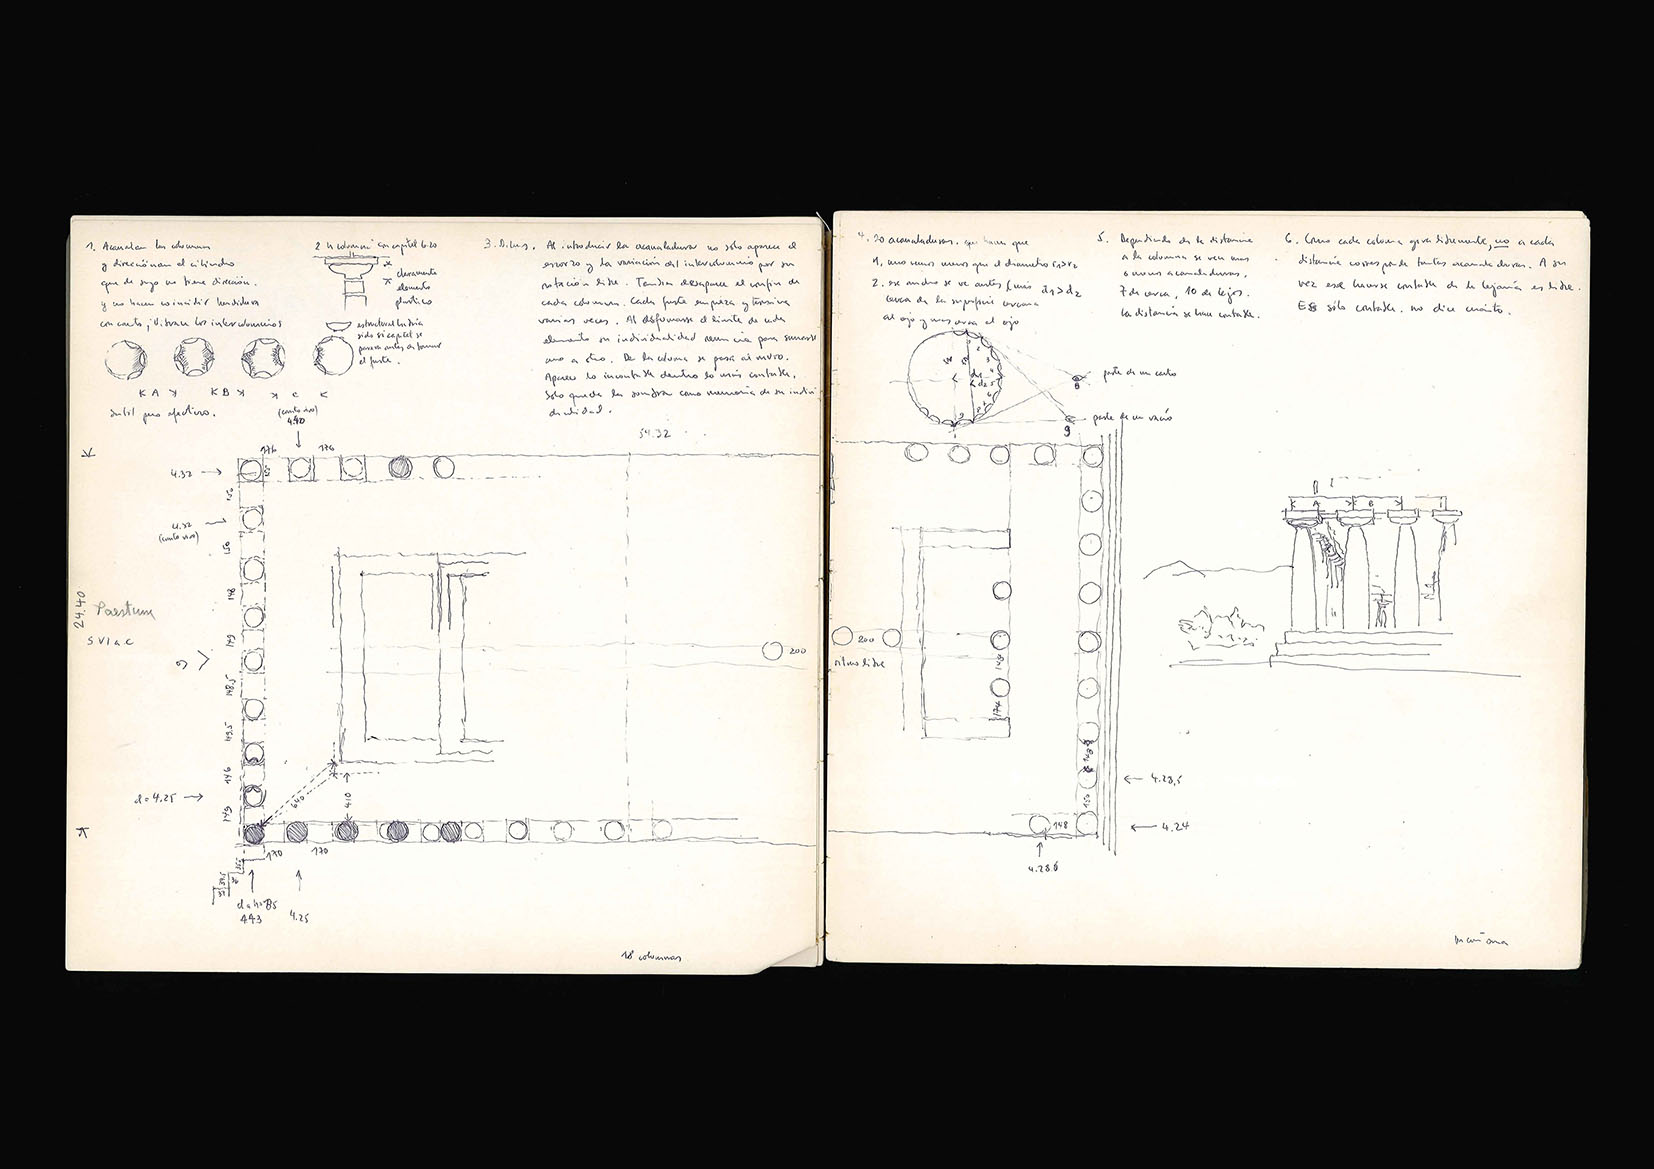 1. Acanalan las columnas
y direccionan el cilindro
que de suyo no tiene dirección.
y no hacen coincidir hendidura
con canto ¡Vibran los intercolumnios!
K A K B c
(canto vivo)
4.40
sutil pero efectivo.
2 columna con capitel
claramente
elemento
plástico
estructural
sido si capitel se
antes de tomar
el fuste.
3. Al introducir la acanaladura no sólo aparece el
escorzo y la variación del intercolumnio por su
rotación libre. También desaparece el confín de
cada columna. Cada fuste empieza y termina
varias veces. Al difumarse el límite de cada
elemento su individualidad renuncia para sumarse
uno a otro. De la columna se pasa al muro.
Aparece lo incontable dentro lo más contable.
Sólo queda la sombra como memoria de su indivi
dualidad.
54.32
176 176
4.32
150
4.32
(canto vivo)
150
148
24.40
Paestum
149
148,5
49.5
146
d=4.25
149
640
410
170 170
443
4.25
200
18 columnas
4. 20 acanaladuras. que hacen que
1, uno menos que el diámetro r1>r2
2. ese andro se ve antes d1>d2
cerca de la superficie cercana
al ojo y mas cerca el ojo
parte de un canto
parte de un vacío
5. Dependiendo de la distancia
a la columna se ven mas
o menos acanaladuras.
7 de cerca, 10 de lejos.
La distancia se hace contable.
6. Como cada columna gira libremente, no a cada
distancia corresponde tantas acanaladuras. A su
vez ese hacerse contable de la lejanía es libre.
Es sólo contable. no dice cuánto.
A B
200
ritmo libre
149
174
150
4.28,5
148
4.24
4.28.6
mañana